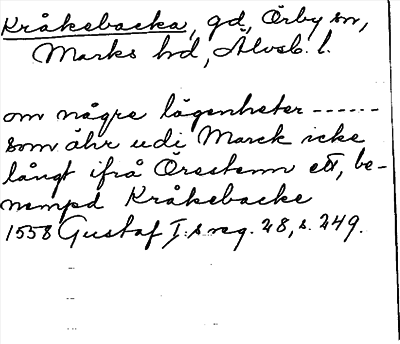 Kråkebacka, gd, Örby sn,
Marks hd, Älvsb. l.
om någre lägenheter ------
som ähr udi Marck icke
långt ifrå Öresteenn ett, be-
nempd Kråkebacke
1558 Gustaf I:s reg. 28, s. 249.